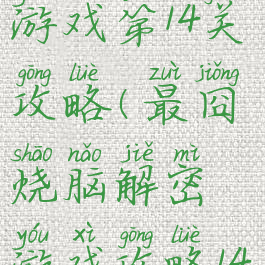 游戏第14关
gōng lüè zuì jiǒng
攻略(最囧
shāo nǎo jiě mì
烧脑解密
yóu xì gōng lüè
游戏攻略14